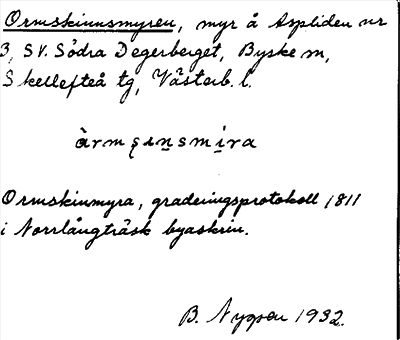 Ormskinnsmyren, myr å Aspliden nr
3, SV. Södra Degerberget, Byske sn,
Skellefteå tg, Västerb. l.
Ormskinmyra, graderingsprotokoll 1811
i Norrlångträsk byaskrin.
B. Nygren 1932.